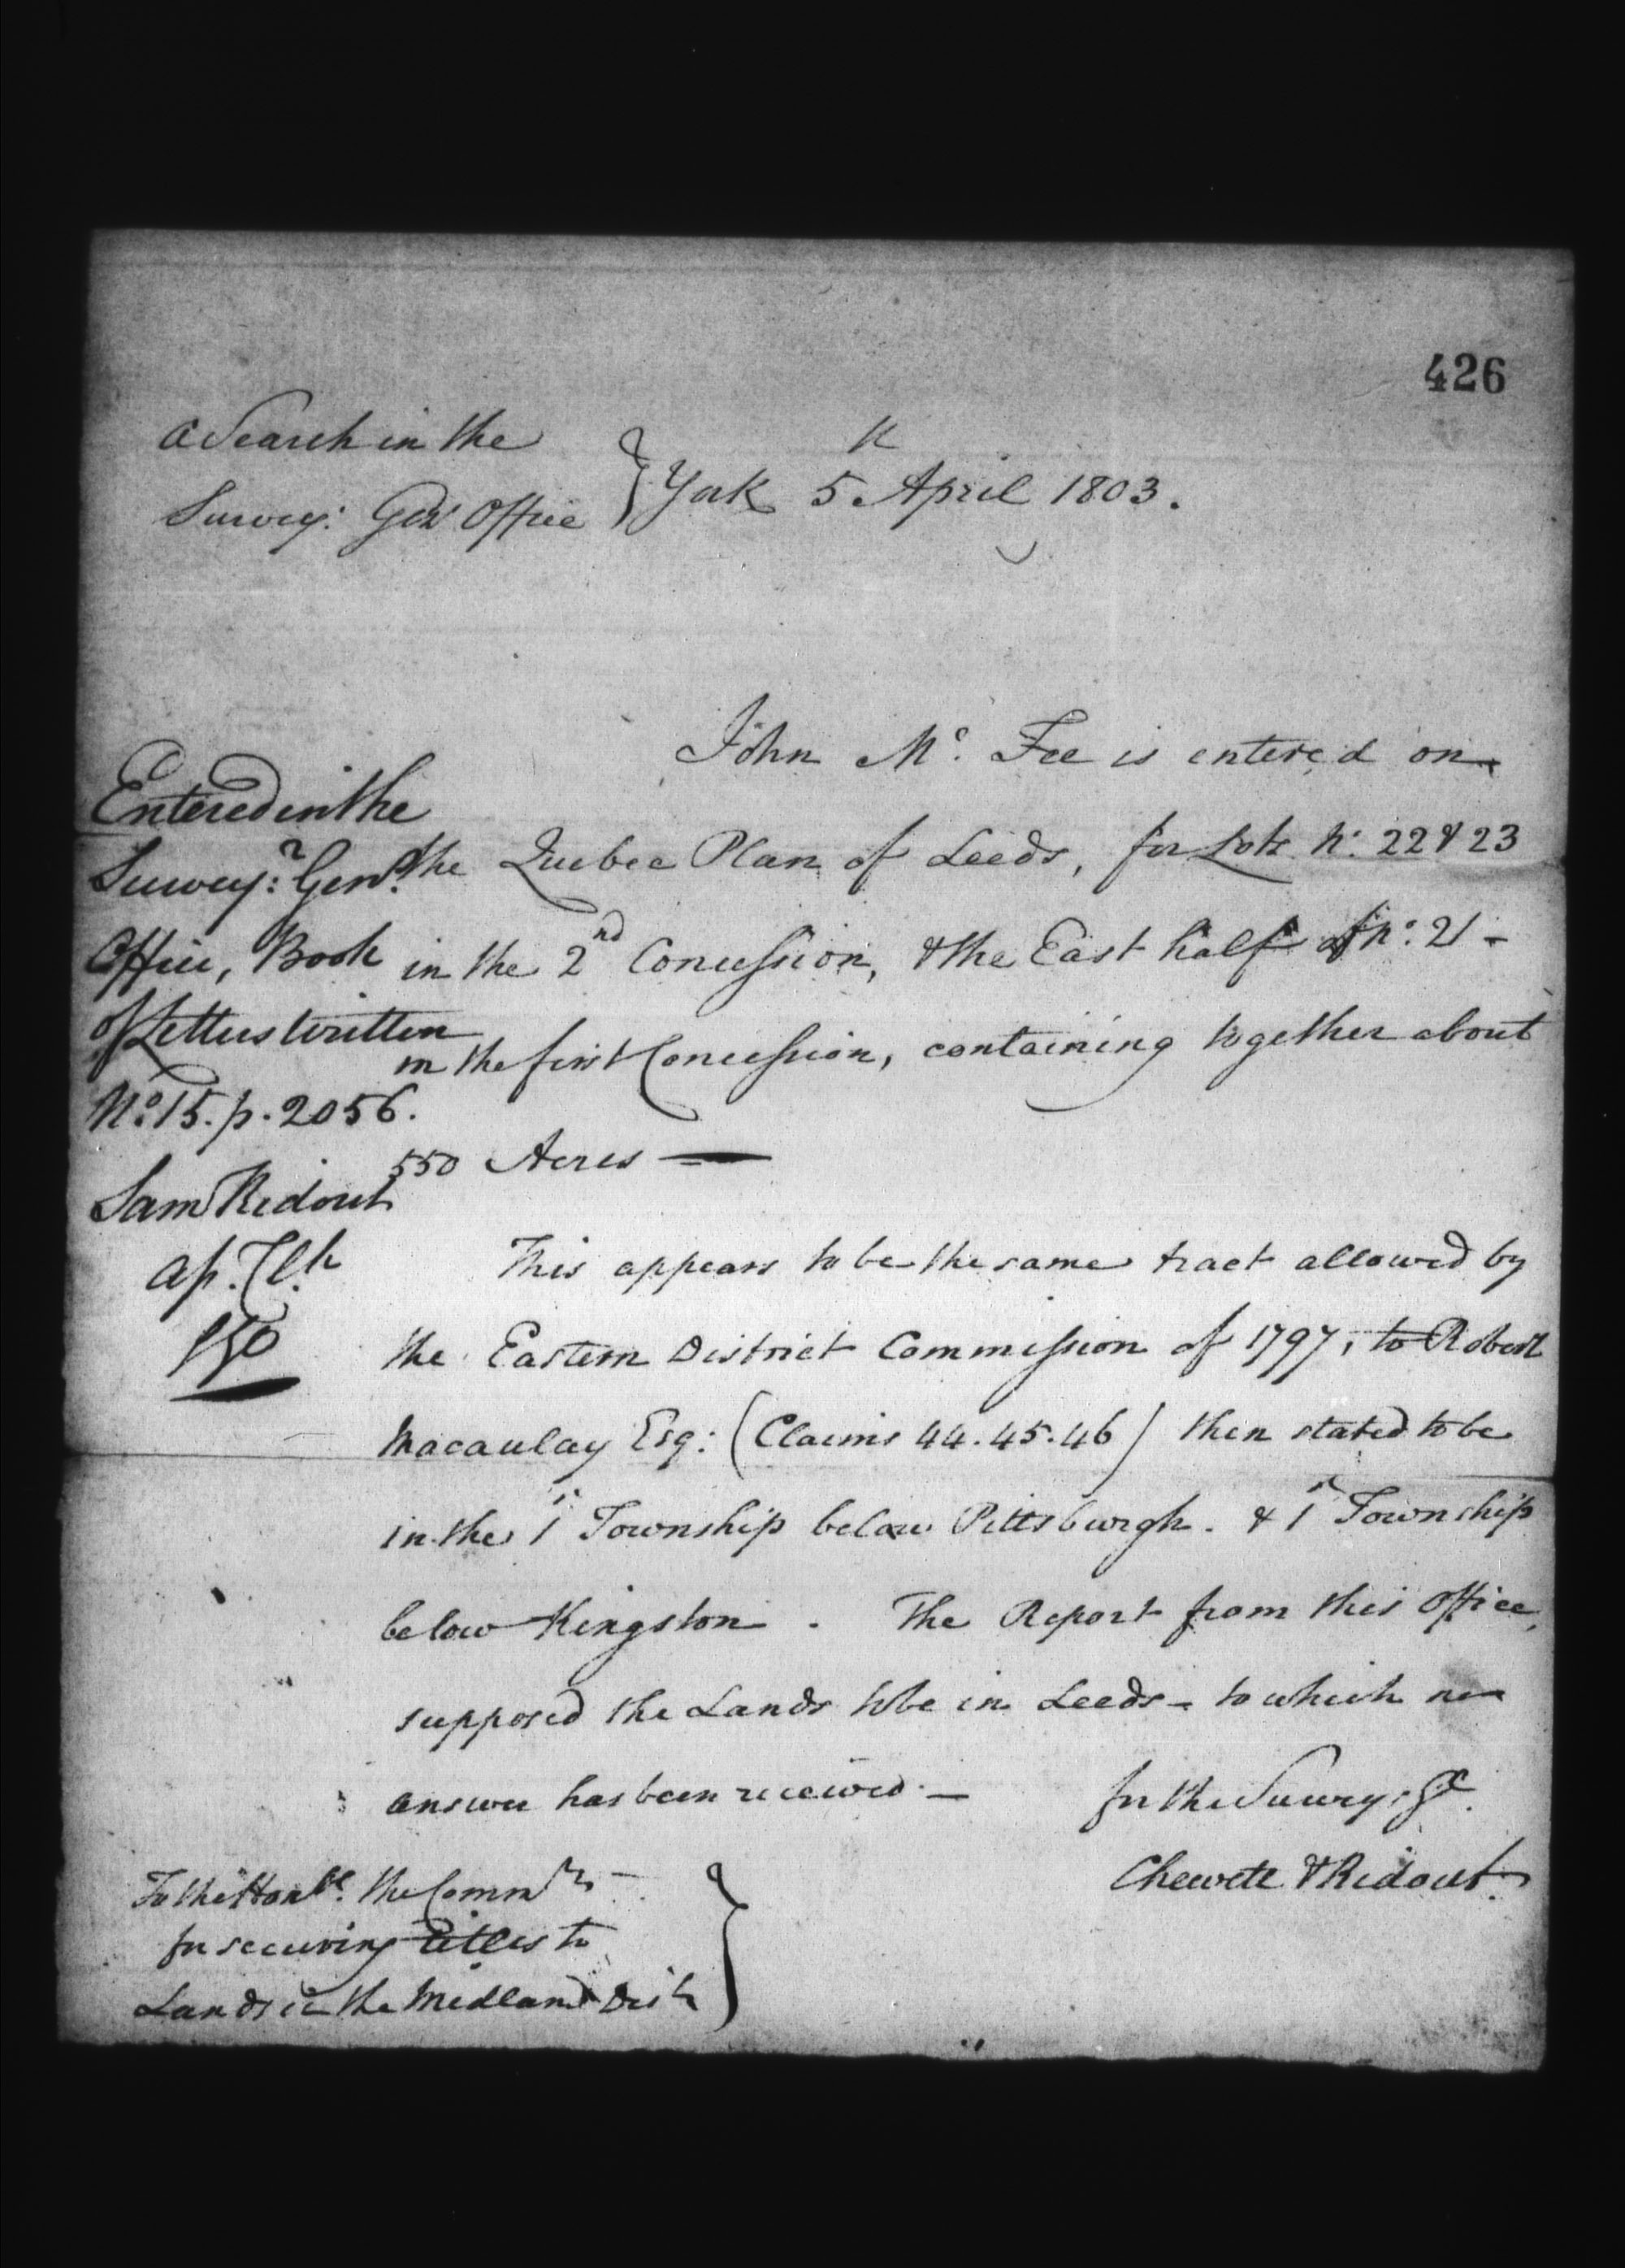 426
a Search in the
Survey: Genl Office } York 5th April 1803.
John Mc. Fee is entered on
the Quebec Plan of Leeds, for Lots No. 22 & 23
in the 2nd Concession, & the East half of No. 21 -
in the first Concession, containing together about
550 Acres —
Entered in the
Survey:r Genl.
Office, Book
of Letters written
No. 15. p. 2056.
Sam Ridout
This appears to be the same tract allowed by
the Eastern District Commission of 1797, to Robert
Macaulay Esq: (Claims 44. 45. 46) then stated to be
in the 1st Township below Pittsburgh. & 1st Township
below Kingston. The Report from this Office,
supposed the Lands to be in Leeds - to which no
answer has been received. —
for the Survey: Gl.
Chewett & Ridout.
To the Honble. the Commrs
for securing Titles to
Lands in the Midland Dist. }